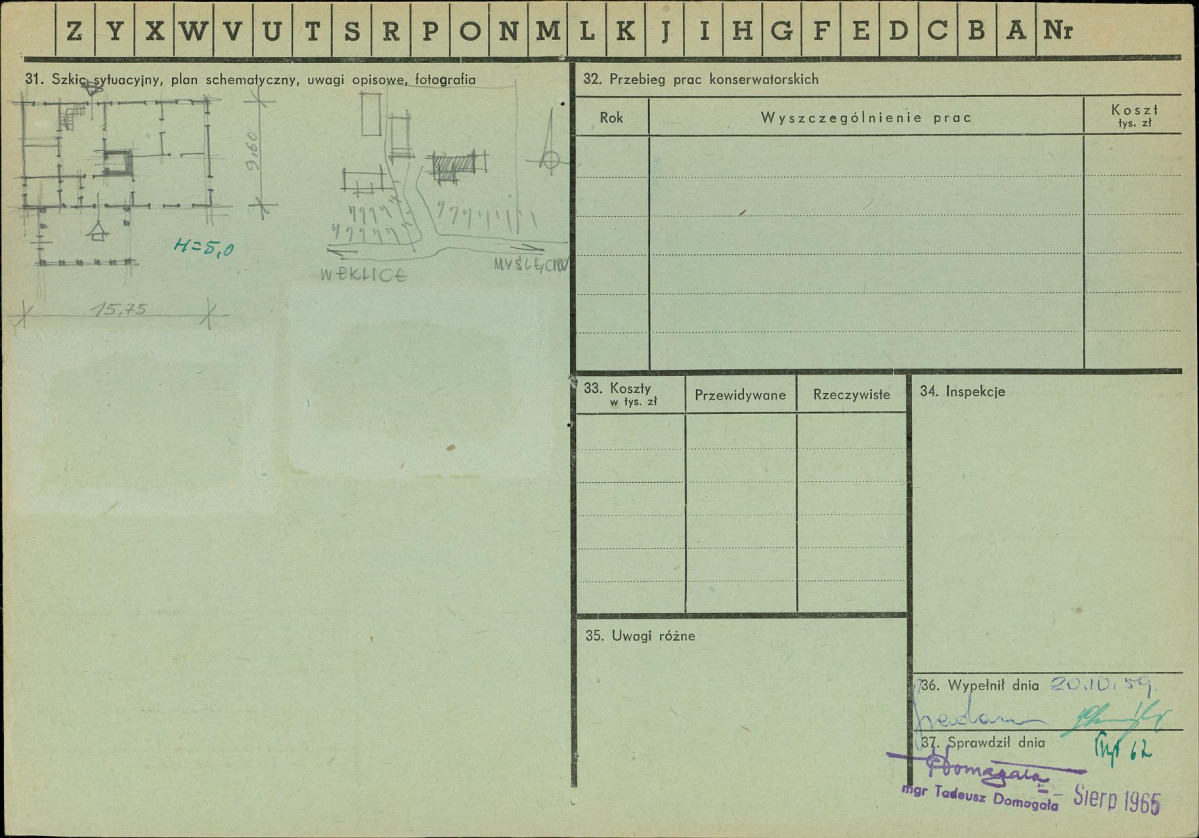 Z Y X W V U T S R P O N M L K J I H G F E D C B A Nr
31. Szkic sytuacyjny, plan schematyczny, uwagi opisowe, fotografia
9,60
H=5,0
15,75
WEKLICE
32. Przebieg prac konserwatorskich
Rok
Wyszczególnienie prac
Koszt
tys. zł
33. Koszty
w tys. zł
Przewidywane
Rzeczywiste
34. Inspekcje
35. Uwagi różne
36. Wypełnił dnia 20.10.59.
37. Sprawdził dnia
62
TDomagała
mgr Tadeusz Domagała
Sierp 1965